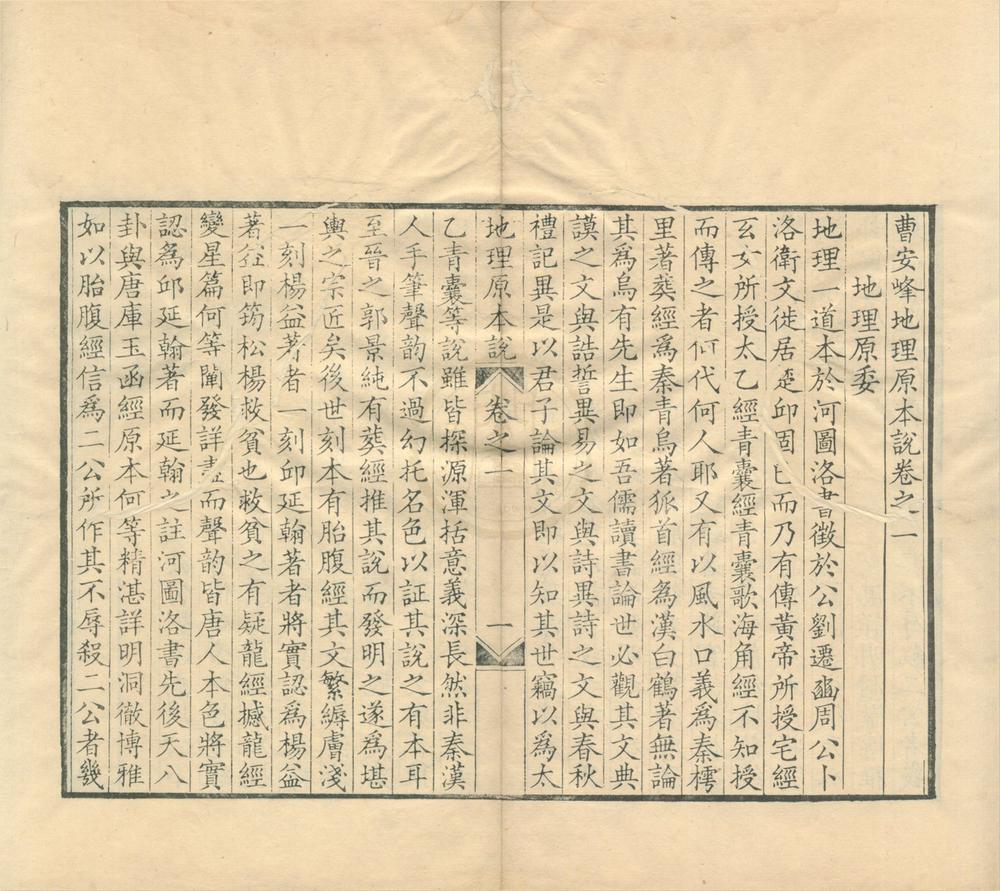 曹安峰地理原本說卷之一
地理原委
地理一道本於河圖洛書徵於公劉遷豳周公卜
洛衛文徙居楚邱固已而乃有傳黃帝所授宅經
玄女所授太乙經青囊經青囊歌海角經不知授
而傳之者何代何人耶又有以風水口義爲秦樗
里著葬經爲秦青烏著狐首經爲漢白鶴著無論
其爲烏有先生即如吾儒讀書論世必觀其文典
謨之文與誥誓異易之文與詩異詩之文與春秋
禮記異是以君子論其文即以知其世竊以爲太
地理原本說 卷之一 一
乙青囊等說雖皆探源渾括意義深長然非秦漢
人手筆聲韵不過幻托名色以証其說之有本耳
至晉之郭景純有葬經推其說而發明之遂爲堪
輿之宗匠矣後世刻本有胎腹經其文繁縟膚淺
一刻楊益著者一刻邱延翰著者將實認爲楊益
著益即筠松楊救貧也救貧之有疑龍經撼龍經
變星篇何等闡發詳盡而聲韵皆唐人本色將實
認爲邱延翰著而延翰之註河圖洛書先後天八
卦與唐庫玉函經原本何等精湛詳明洞徹博雅
如以胎腹經信爲二公所作其不辱殺二公者幾